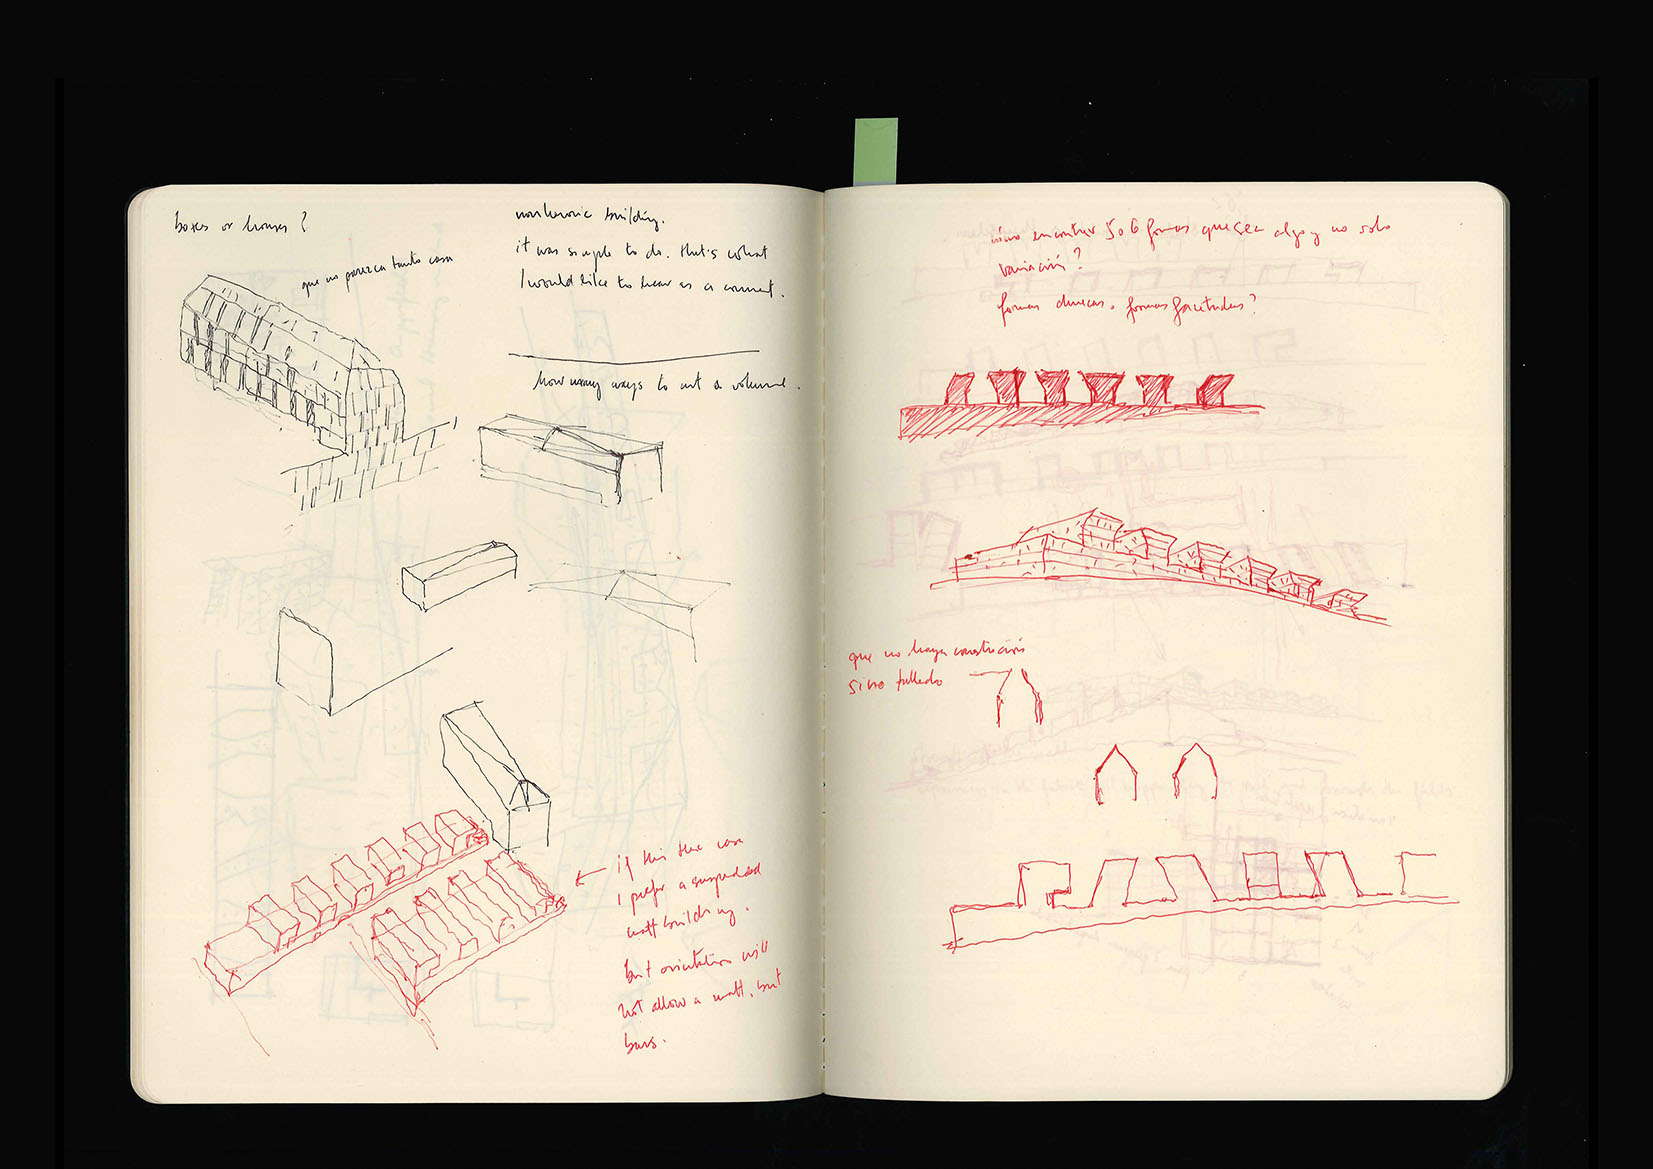 boxes or houses?
que no parezca tanto casa
non heroic building.
it was simple to do. that's what
I would like to hear as a comment.
how many ways to cut a volume.
if this the case
I prefer a suspended
matt building.
but orientation will
not allow a matt, but
bars.
cómo encontrar 5 o 6 formas que sea algo y no solo
variación?
formas chuecas, formas facetadas?
que no haya construcción
sino tallado